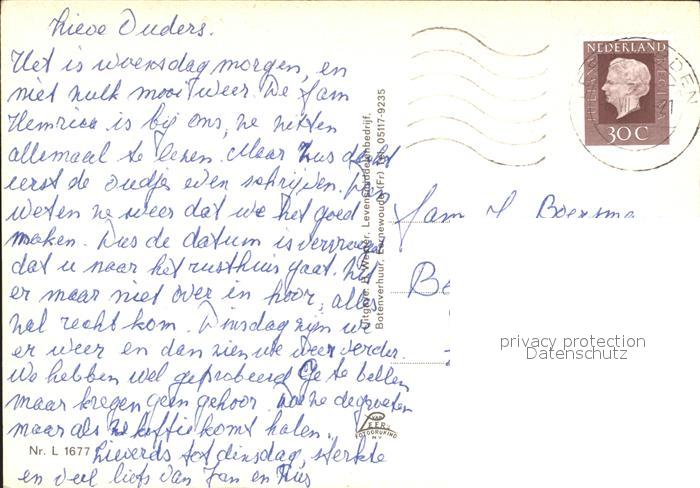 Lieve Ouders.
Het is woensdag morgen, en
niet zulk mooi weer. De fam
Hemrica is bij ons, ze zitten
allemaal te lezen. Maar Zus dacht
eerst de oudjes even schrijven. Dan
weten ze weer dat we het goed
maken. Dus de datum is vervroegd
dat u naar het rusthuis gaat. Zit
er maar niet over in hoor, alles
zal recht kom. Dinsdag zijn we
er weer en dan zien we weer verder.
We hebben wel geprobeerd Ge te bellen
maar kregen geen gehoor. Doe ze de groeten
maar als ze koffie komt halen.
Lieverds tot dinsdag, sterkte
en veel liefs van Jan en Zus
Nr. L 1677
Uitgave: H. Wester, Levensmiddelenbedrijf,
Botenverhuur, Earnewoude (Fr) Tel. 05117-9235
VAN LEER'S
FOTODRUKIND
N.V.
NEDERLAND
JULIANA REGINA
30 C
DEN
21
Fam J Boersma
Be
privacy protection
Datenschutz